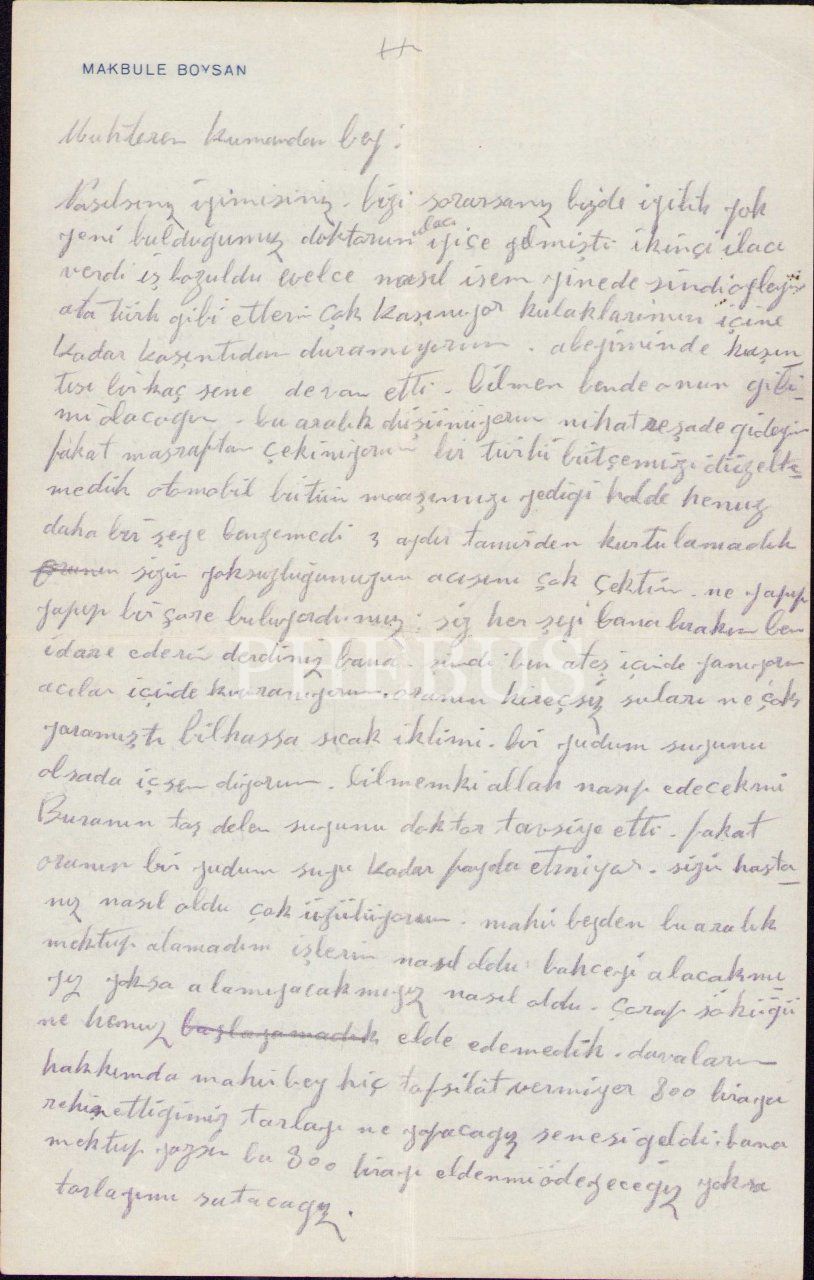 MAKBULE BOYSAN
Muhterem kumandan bey:
Nasılsınız iyimisiniz. bizi sorarsanız bizde iyilik yok
yeni bulduğumuz doktorun ilacı iyice gelmişti ikinçi ilacı
verdi iş bozuldu evelce nasıl isem yinede şindi öyleyim
ata türk gibi etlerim çok kaşınıyor kulaklarımın içine
kadar kaşıntıdan duramıyorum. abeyiminde kaşın
tısı bir kaç sene devam etti. bilmem bende onun gibi
mi olacağım. bu aralık düşünüyorum nihat reşade gideyim
fakat masraftan çekiniyorum bir türlü bütçemizi düzelte
medik otomobil bütün maaşımızı yediği halde henuz
daha bir şeye benzemedi 3 aydır tamirden kurtulamadık
sizin yoksuzluğunuzun acısını çok çektim. ne yapıp
yapıp bir çare buluyordunuz: siz her şeyi bana bırakın ben
idare ederim derdiniz bana. şindi ben ateş içinde yanıyorum
acılar içinde kıvranıyorum. oranın kireçsiz suları ne çok
yaramıştı bilhassa sıcak iklimi. bir yudum suyunu
olsada içsem diyorum. bilmemki allah nasip edecekmi
Buranın taş delen suyunu doktor tavsiye etti. fakat
oranın bir yudum suyu kadar fayda etmiyor. sizin hasta
nız nasıl oldu çok üzülüyorum. mahir beyden bu aralık
mektup alamadım işlerim nasıl oldu bahçeyi alacakmı
yız yoksa alamıyacakmıyız nasıl oldu. çorap söküğü
ne henuz başlayamadık elde edemedik. davaların
hakkımda mahir bey hiç tafsilât vermiyor 800 lirayı
rehin ettiğimiz tarlayı ne yapacağız senesi geldi. bana
mektup yazsın bu 800 lirayı eldenmi ödeyeceğiz yoksa
tarlayımı satacağız.
PHEBUS